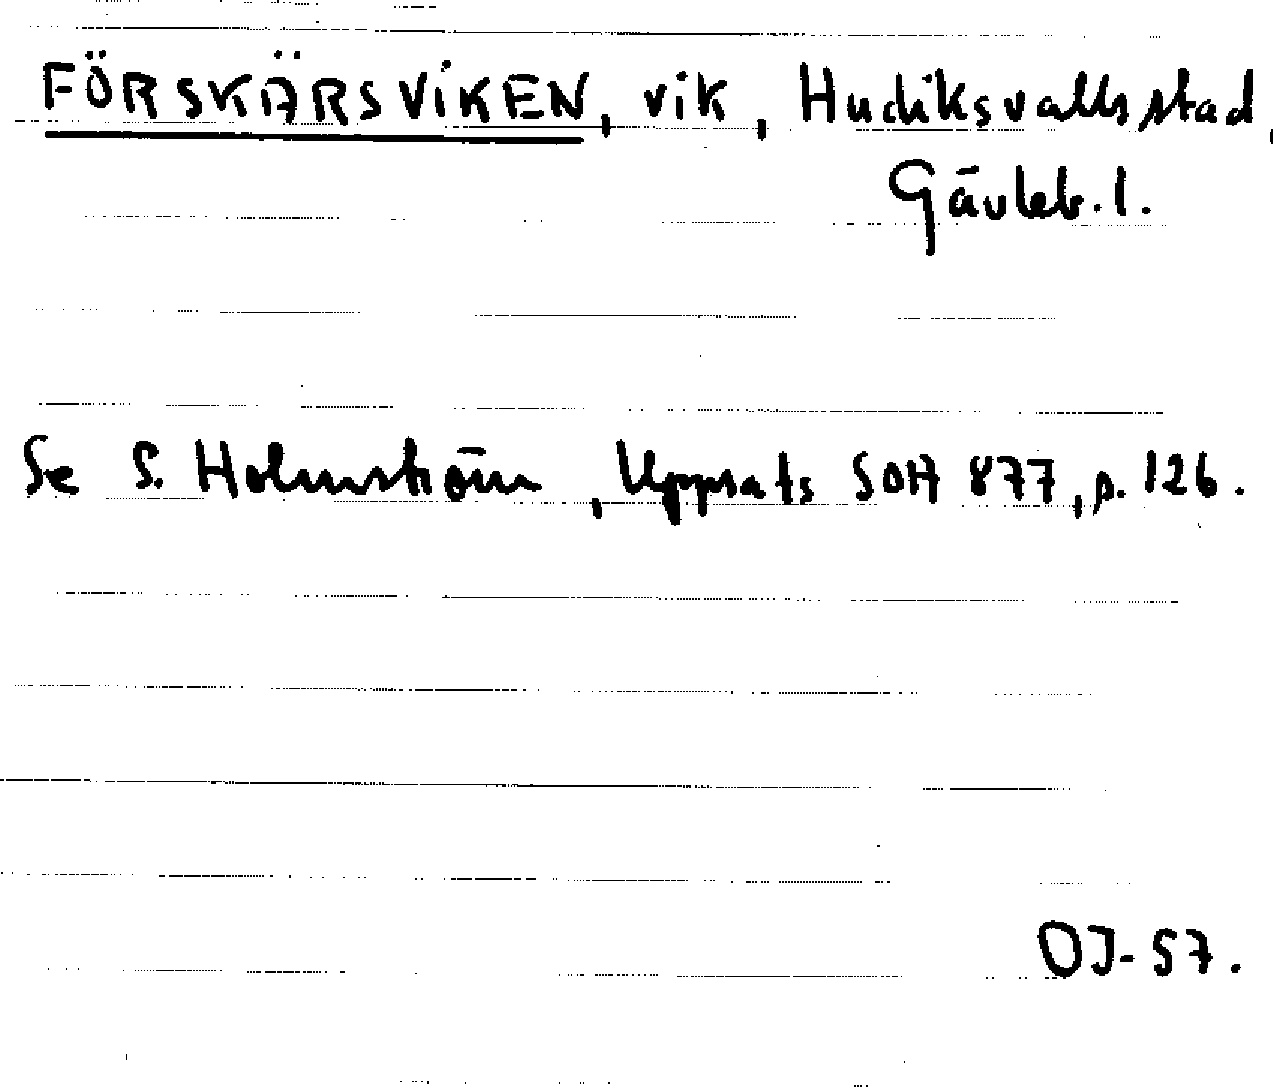 FÖRSKÄRSVIKEN, vik, Hudiksvalls stad,
Gävleb. l.
Se S. Holmström, Uppsats SOA 877, p. 126.
OJ-57.